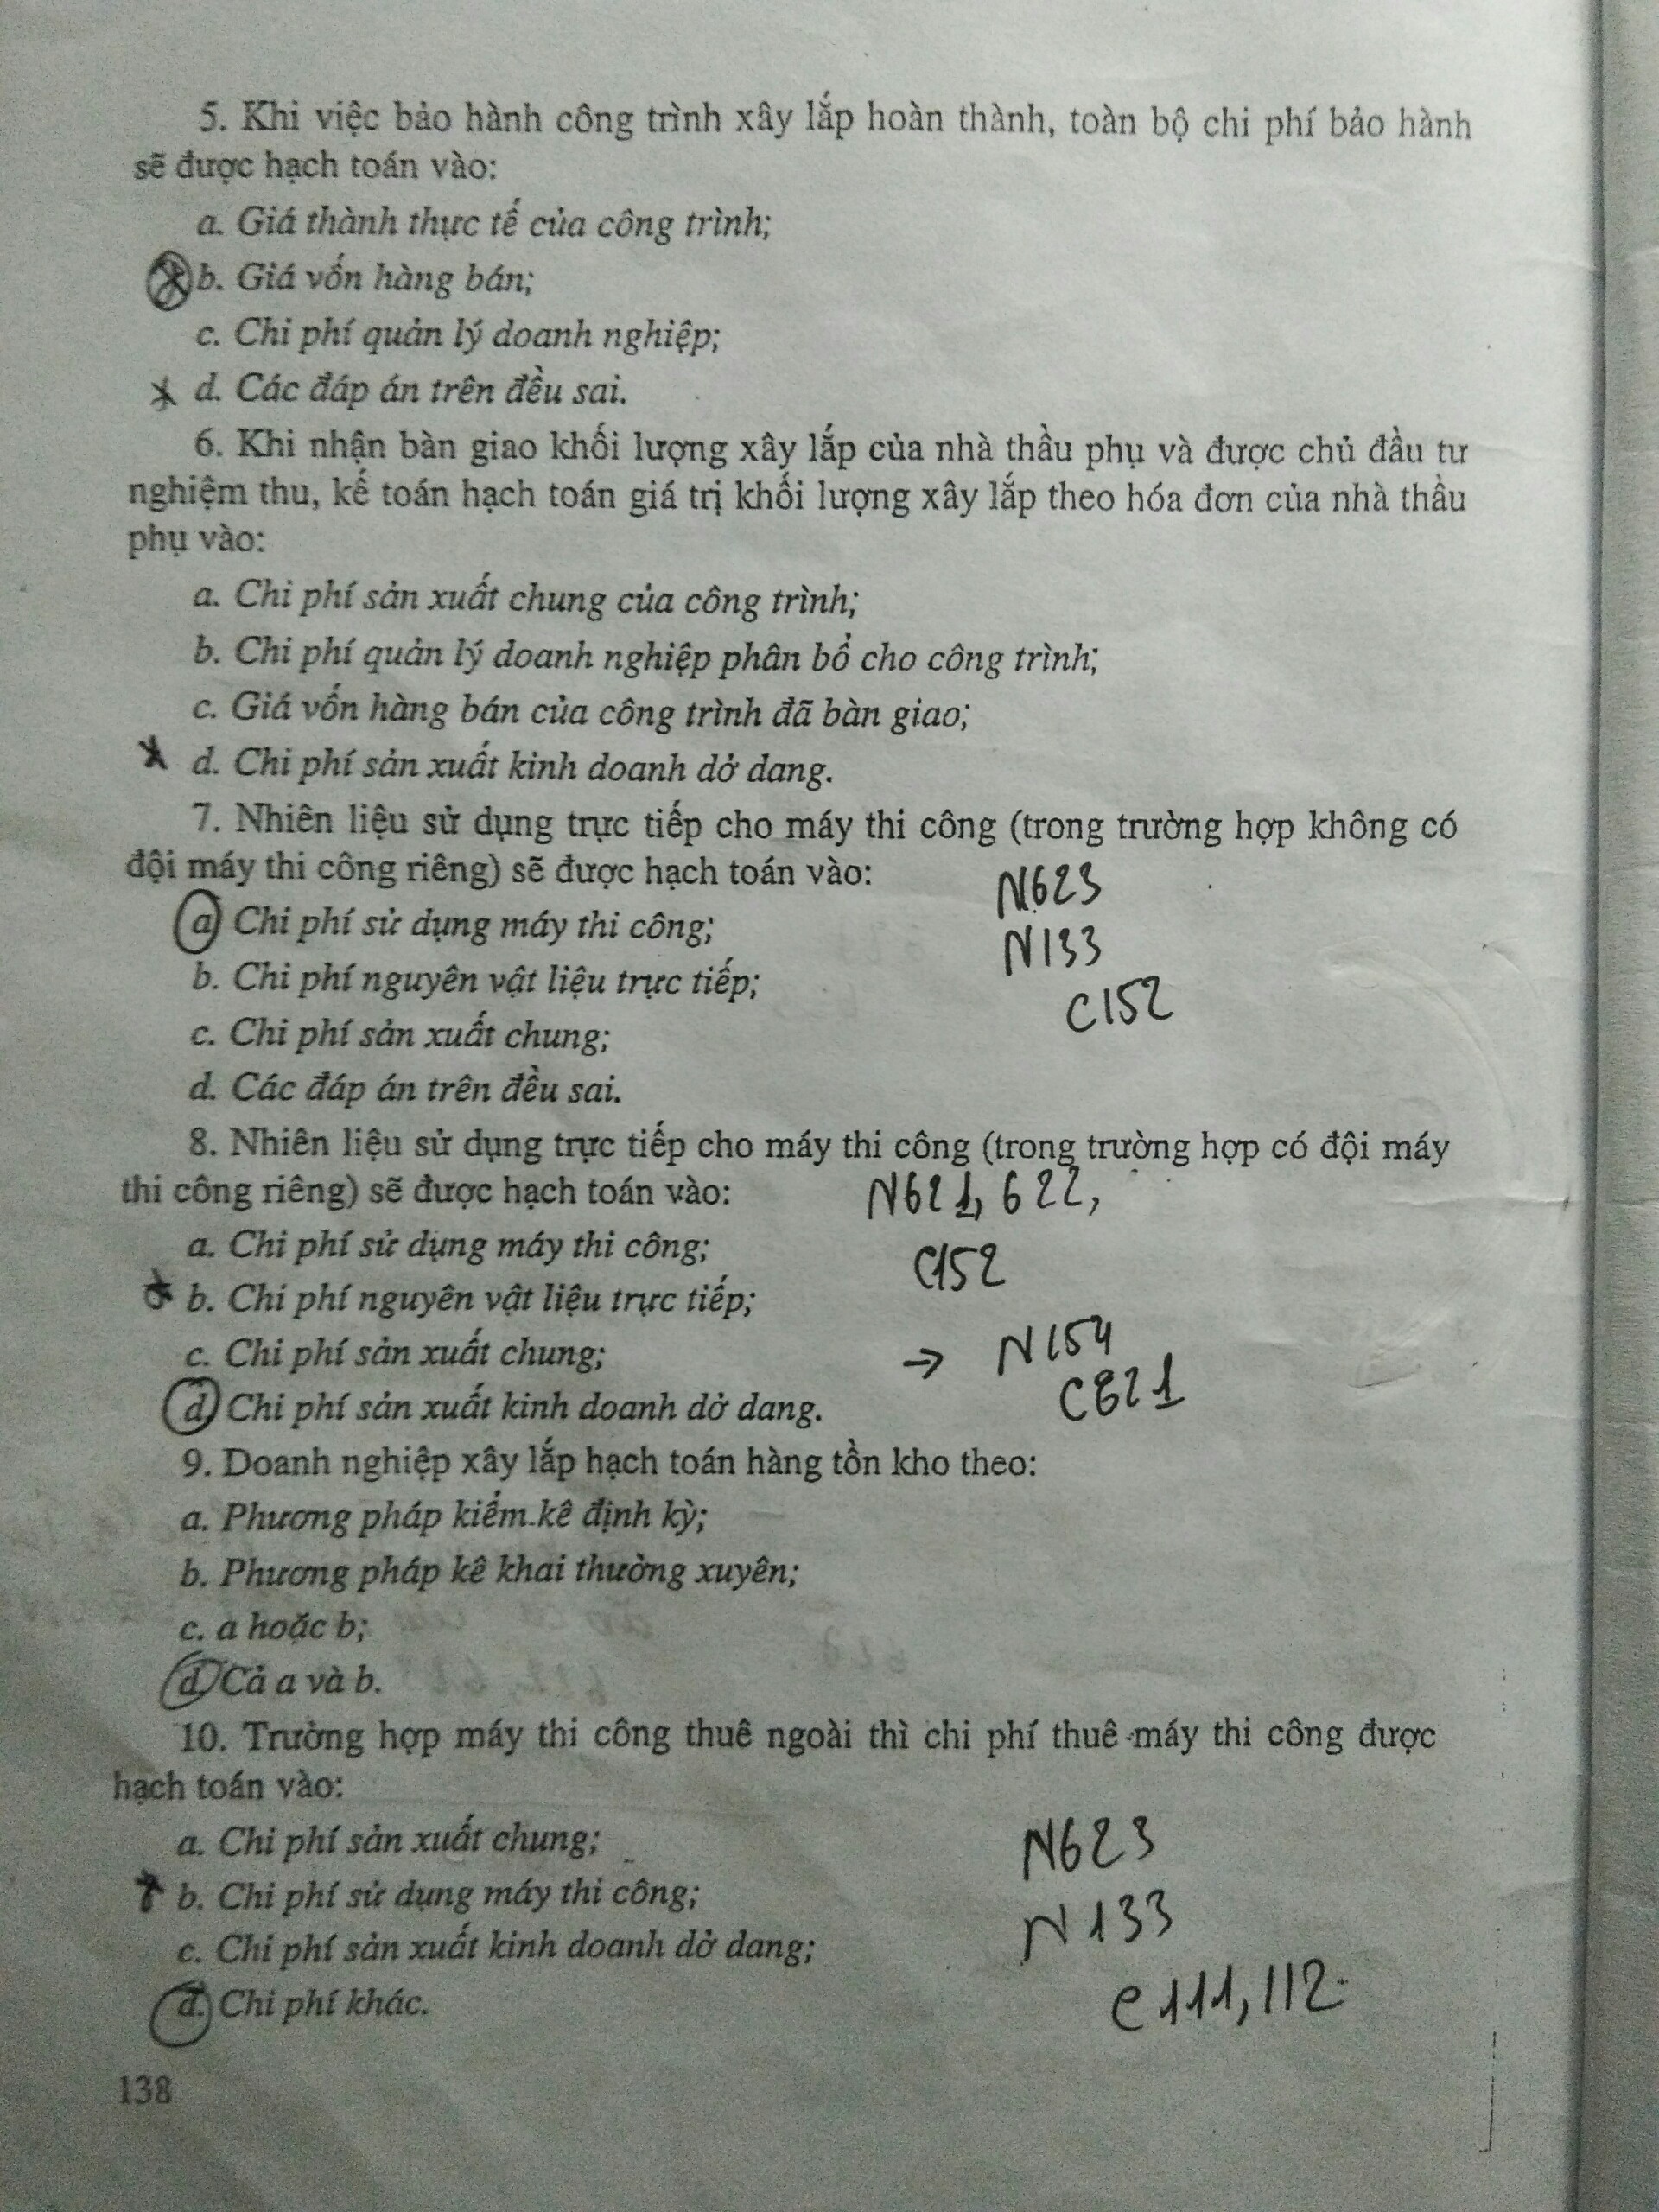 5. Khi việc bảo hành công trình xây lắp hoàn thành, toàn bộ chi phí bảo hành
sẽ được hạch toán vào:
a. Giá thành thực tế của công trình;
b. Giá vốn hàng bán;
c. Chi phí quản lý doanh nghiệp;
d. Các đáp án trên đều sai.
6. Khi nhận bàn giao khối lượng xây lắp của nhà thầu phụ và được chủ đầu tư
nghiệm thu, kế toán hạch toán giá trị khối lượng xây lắp theo hóa đơn của nhà thầu
phụ vào:
a. Chi phí sản xuất chung của công trình;
b. Chi phí quản lý doanh nghiệp phân bổ cho công trình;
c. Giá vốn hàng bán của công trình đã bàn giao;
d. Chi phí sản xuất kinh doanh dở dang.
7. Nhiên liệu sử dụng trực tiếp cho máy thi công (trong trường hợp không có
đội máy thi công riêng) sẽ được hạch toán vào:
N623
a. Chi phí sử dụng máy thi công;
N133
b. Chi phí nguyên vật liệu trực tiếp;
C152
c. Chi phí sản xuất chung;
d. Các đáp án trên đều sai.
8. Nhiên liệu sử dụng trực tiếp cho máy thi công (trong trường hợp có đội máy
thi công riêng) sẽ được hạch toán vào:
N621, 622,
a. Chi phí sử dụng máy thi công;
C152
b. Chi phí nguyên vật liệu trực tiếp;
c. Chi phí sản xuất chung;
→ N154
C621
d. Chi phí sản xuất kinh doanh dở dang.
9. Doanh nghiệp xây lắp hạch toán hàng tồn kho theo:
a. Phương pháp kiểm kê định kỳ;
b. Phương pháp kê khai thường xuyên;
c. a hoặc b;
d. Cả a và b.
10. Trường hợp máy thi công thuê ngoài thì chi phí thuê máy thi công được
hạch toán vào:
a. Chi phí sản xuất chung;
N623
b. Chi phí sử dụng máy thi công;
N133
c. Chi phí sản xuất kinh doanh dở dang;
C111, 112
d. Chi phí khác.
138